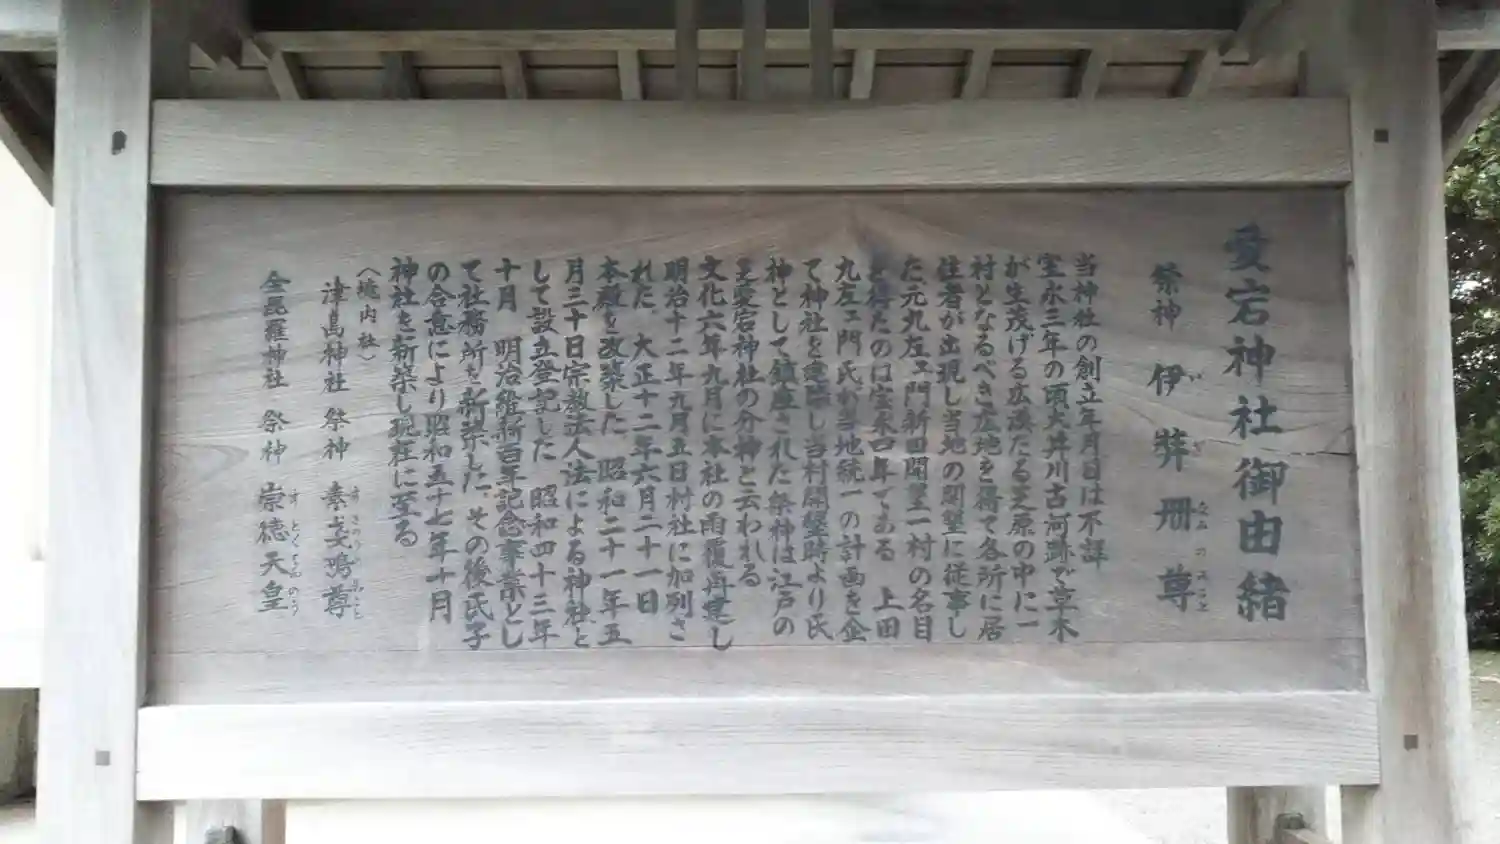 愛宕神社御由緒
祭神 伊弉冊尊
当神社の創立年月日は不詳
宝永三年の頃大井川古河跡で草木
が生茂げる広漠たる芝原の中に一
村となるべき広地を得て各所に居
住者が出現し当地の開墾に従事し
た元九左ェ門新田開墾一村の名目
を得たのは宝永四年である 上田
九左ェ門氏が当地統一の計画を企
て神社を建 し当村開墾時より氏
神として鎮座された祭神は江戸の
芝愛宕神社の分神と云われる
文化六年九月に本社の雨覆再建し
明治十二年九月五日村社に加列さ
れた 大正十二年六月二十一日
本殿を改築した 昭和二十一年五
月三十日宗教法人法による神社と
して設立登記した 昭和四十三年
十月 明治維新百年記念事業とし
て社務所を新築した その後氏子
の合意により昭和五十七年十月
神社を新築し現在に至る
(境内社)
津島神社 祭神 素戔鳴尊
金毘羅神社 祭神 崇徳天皇